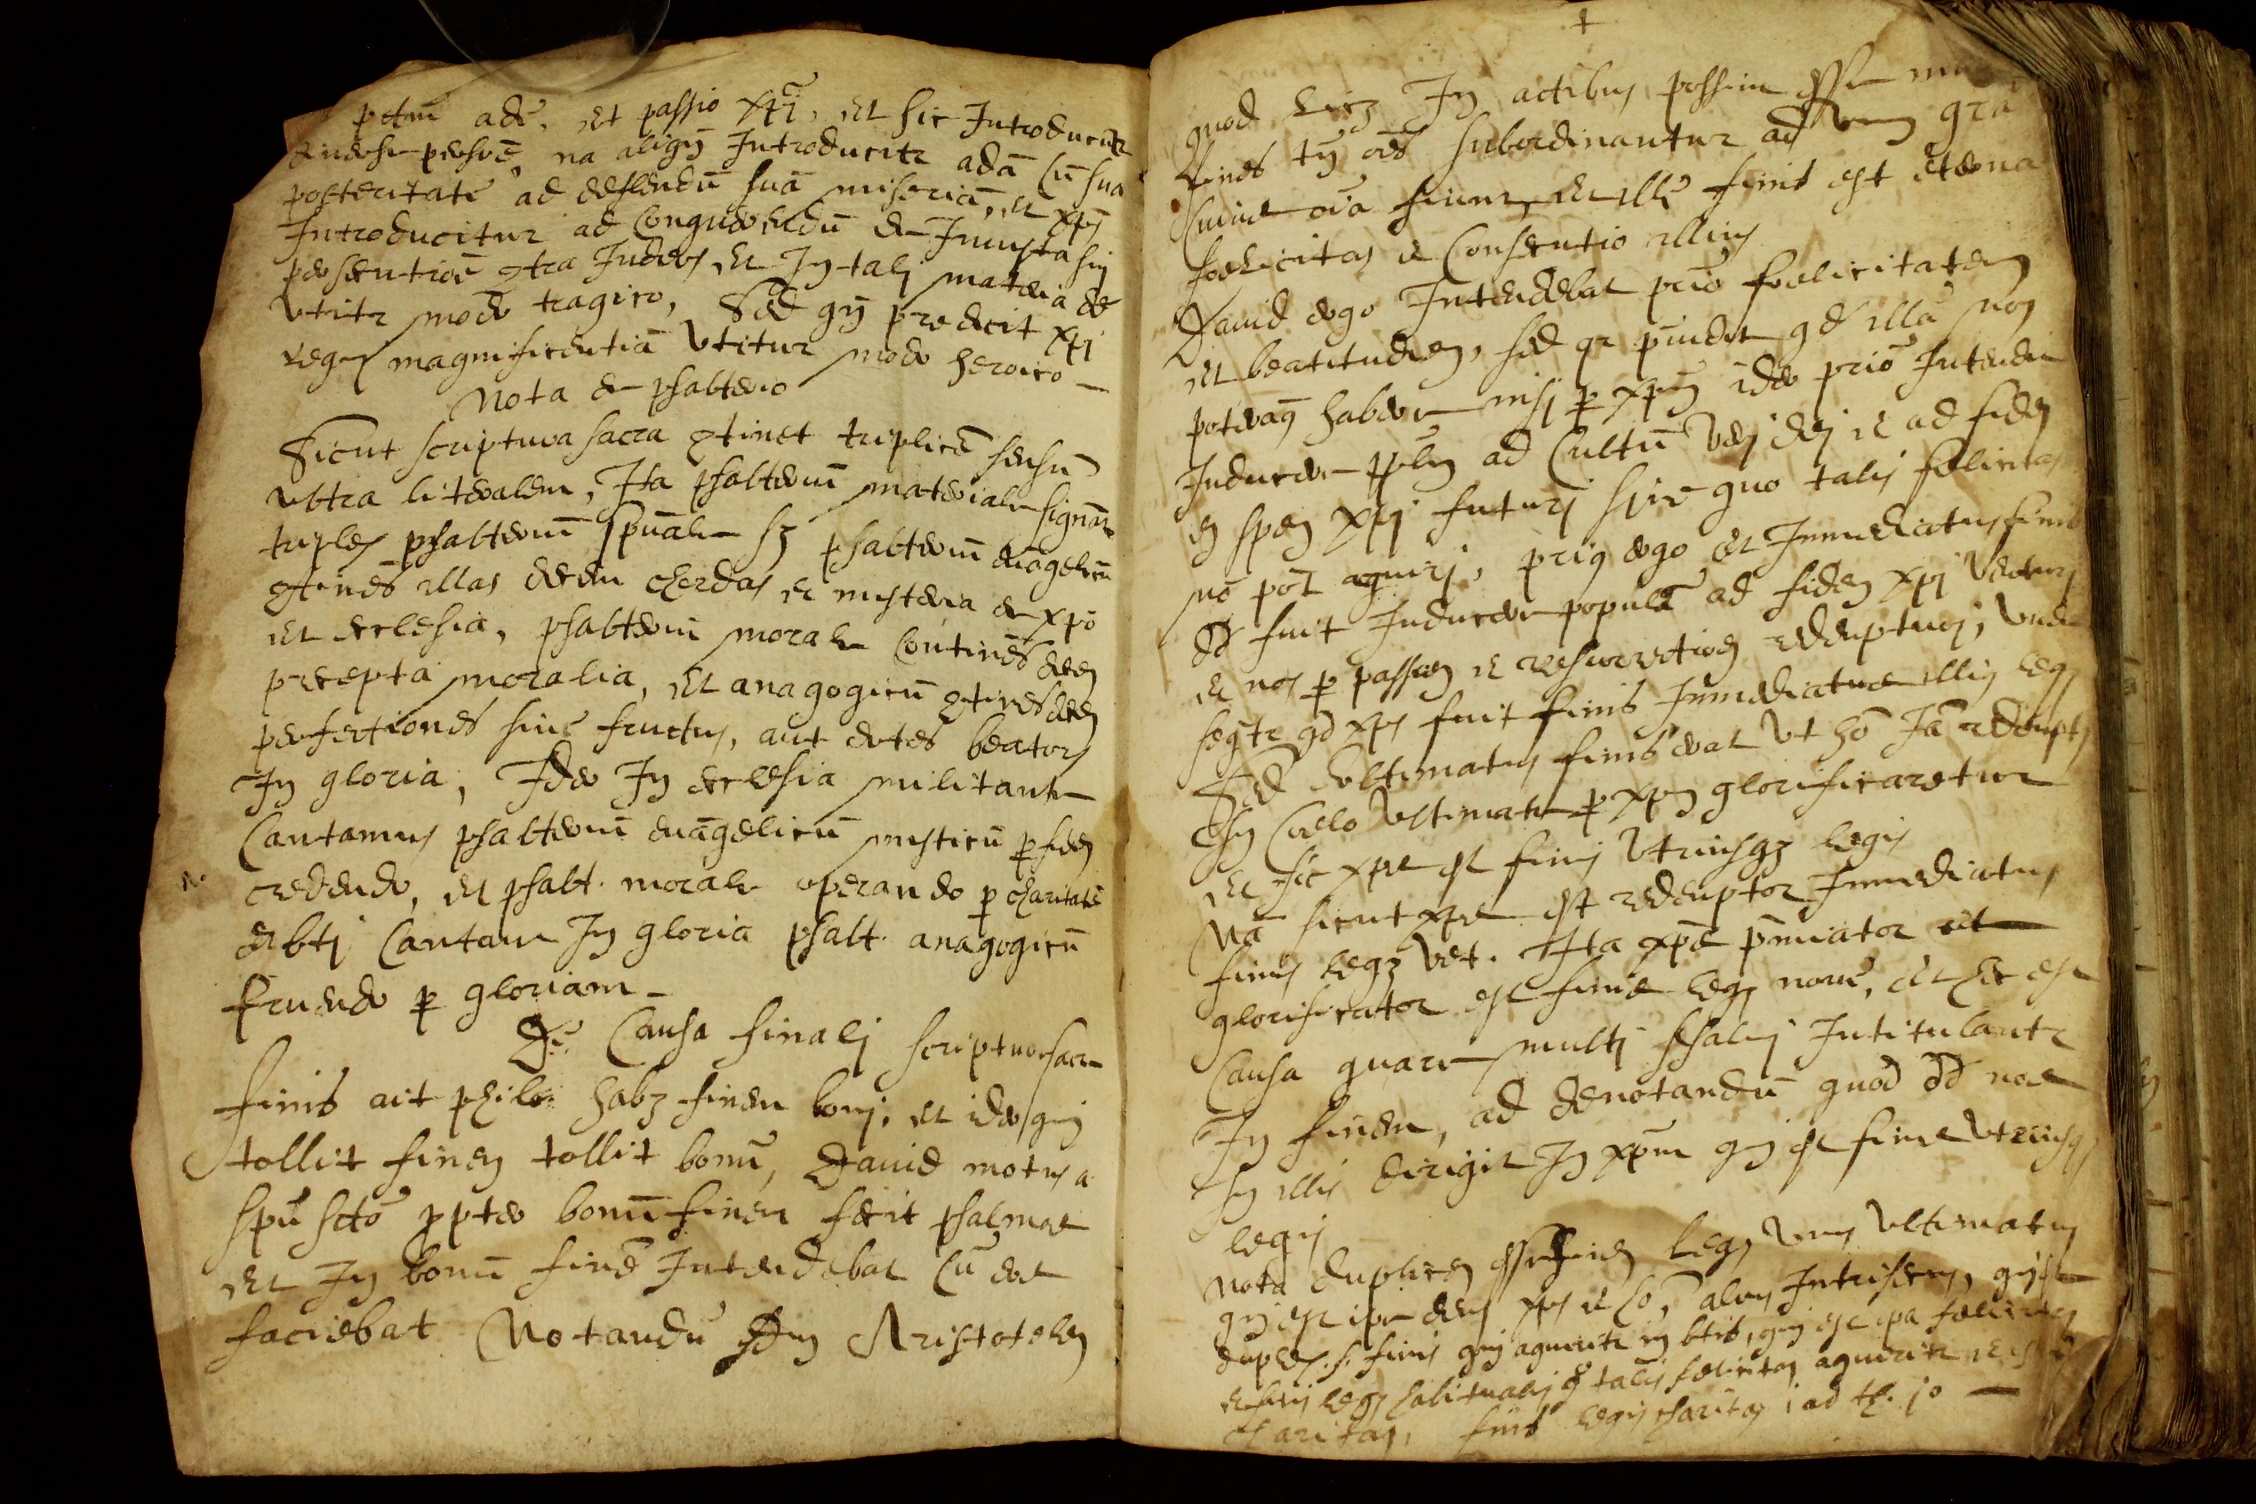 pctm̄ adę, et passio xpi, et sic Introducitr
diuersę personę, na aliqn̄ Introducitr adā cū sua
posteritatē ad deflendū suā miseriā, et xps
Introducitur ad conquerendū de Iniusta sui
persecutiōe ɔtra Iudeos, et In tali materia de
vtitr modo tragico, Sed qn̄ predicit xpi
regis magnificentiā vtitur modo heroico
Nota de psalterio
Sicut scriptura sacra ɔtinet triplicē sensū
vltra literalem, Ita psalteriū materiale signat
triplex psalteriū spuāle sz psalteriū euāgelicū
ɔtinēs illas decem chordas et misteria de xpo
et ecclesia, psalteriū morale continēs decem
precepta moralia, et anagogicū ɔtinēs decem
perfectiones siue fructus, aut dotes beatorꝫ
In gloria, Ideo In ecclesia militante
Cantamus psalteriū euāgelicū misticū p̱ fidem
credendo, et psalt. morale operando p̱ charitatē
et bti Cantant In gloria psalt. anagogicū
fruendo p̱ gloriam
De Causa finali scripturę sacrę
finis ait philo: habꝫ finem boni, et ideo qui
tollit finem tollit bonū, Dauid motus a
spū scto ppter bonū finem fecit psalmos
et In bonū finē Intendebat cū eos
faciebat Notandū scdm Aristotelem
+
quod licꝫ In actibus possint esse
fines tn̄ oēs subordinantur ad vnum
cuius oīa fiunt, et ille finis est eterna
foelicitas et Consecutio illius
Dauid ergo Intendebat prīo foelicitatem
et beatitudinem, sed qa pᵘidit qd illā non
poterāt habere nisi p̱ xpm̄ ideo prīo Intendit
Inducere pplm̄ ad Cultū veri dei et ad fidem
et spem xpi futuri sine quo talis foelicitas
nō pōt aquiri, prius ergo et Inmediatus finis
dd fuit Inducere populū ad fidem xpi venturi
et nos p̱ passionem et resurrectionem redempturi, vnde
seqtr qd xps fuit finis Inmediatus illius legis
Sed vltimatus finis erat vt hō Iā redemptus
In Coelo vltimate p̱ xpm̄ glorificaretur
et sic xps est finis vtriusqꝫ legis
Nā sicut xps est redemptor Inmediatus
finis legꝫ vet. Ita xps pmiator et
glorificator est finis legis nouę, et hęc est
Causa quare multi psalmi Intitulantr
In finem, ad denotandū quod dd nos
In illis dirigit In xpm qui est finis vtriusqꝫ
legis
Nota duplicem esse finem legis vnus vltimatus
qui est ipse deus xps et hō, alius Intrinsecus, qui est
duplex. s. finis qui aquiritr in btis, qui est ipa foelicitas
et finis legis habitualis quo talis foelicitas aquiritr et est
charitas, finis legis charitas i ad th. jo